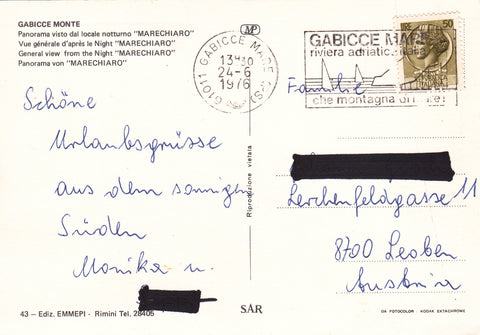 GABICCE MONTE
Panorama visto dal locale notturno "MARECHIARO"
Vue générale d'après le Night "MARECHIARO"
General view from the Night "MARECHIARO"
Panorama von "MARECHIARO"
MP
61011 GABICCE MARE (PS)
13H30
24-6
1976
GABICCE MARE
riviera adriatica
che montagna di
50
Schöne
Urlaubsgrüsse
aus dem sonnigen
Süden
Monika u.
Riproduzione vietata
Familie
Lerchenfeldgasse 11
8700 Leoben
Austria
43 – Ediz. EMMEPI - Rimini Tel. 28405
SAR
DA FOTOCOLOR KODAK EKTACHROME